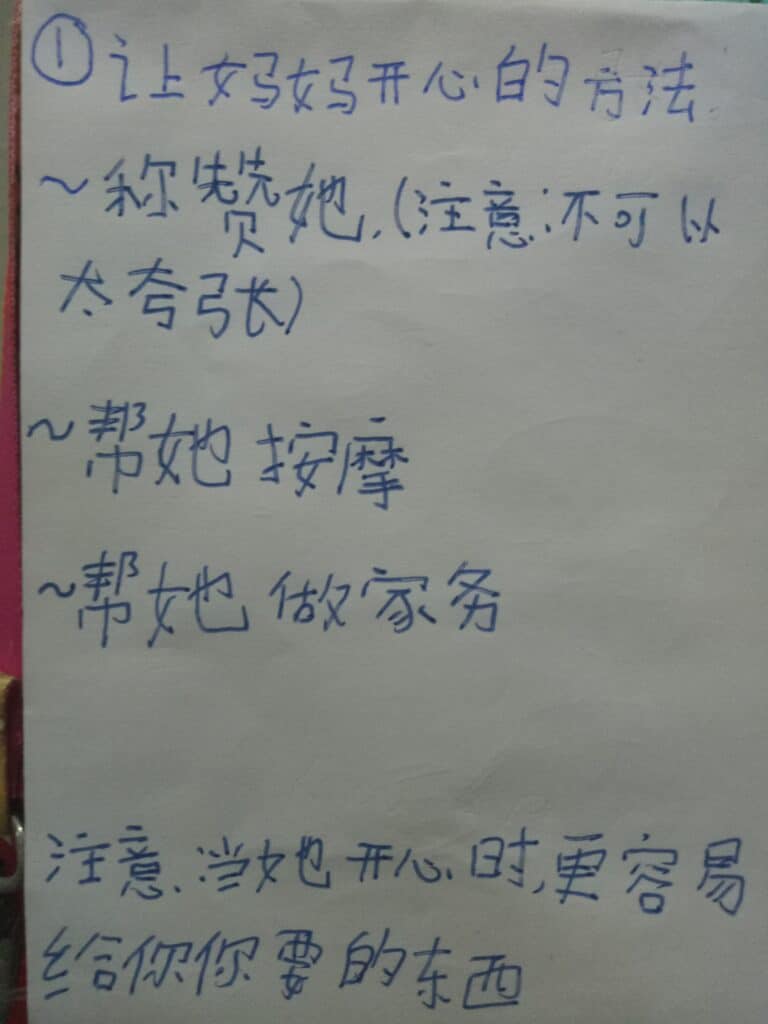 ①让妈妈开心的方法
~称赞她.(注意:不可以
太夸张)
~帮她按摩
~帮她做家务
注意.当她开心时,更容易
给你你要的东西